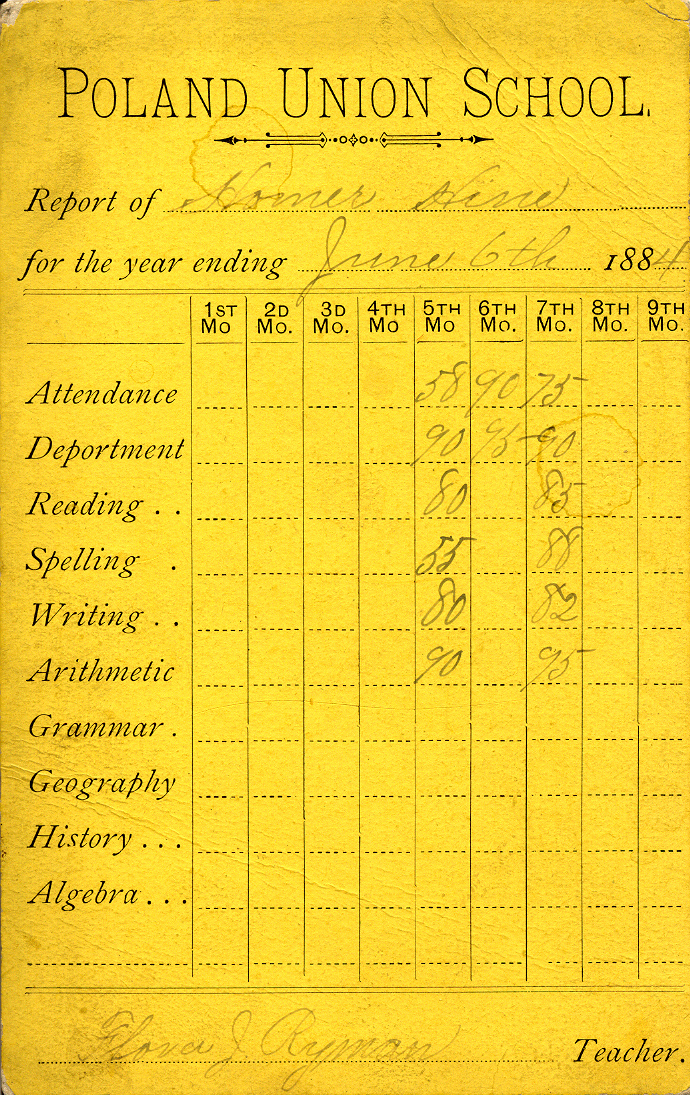 POLAND UNION SCHOOL.
Report of Homer Hine
for the year ending June 6th 1884
1ST Mo 2D Mo. 3D Mo. 4TH Mo 5TH Mo 6TH Mo. 7TH Mo. 8TH Mo. 9TH Mo.
Attendance 58 90 75
Deportment 90 95 90
Reading . . 80 85
Spelling . 55 88
Writing . . 80 82
Arithmetic 90 95
Grammar .
Geography
History . . .
Algebra . . .
Flora J Ryman Teacher.